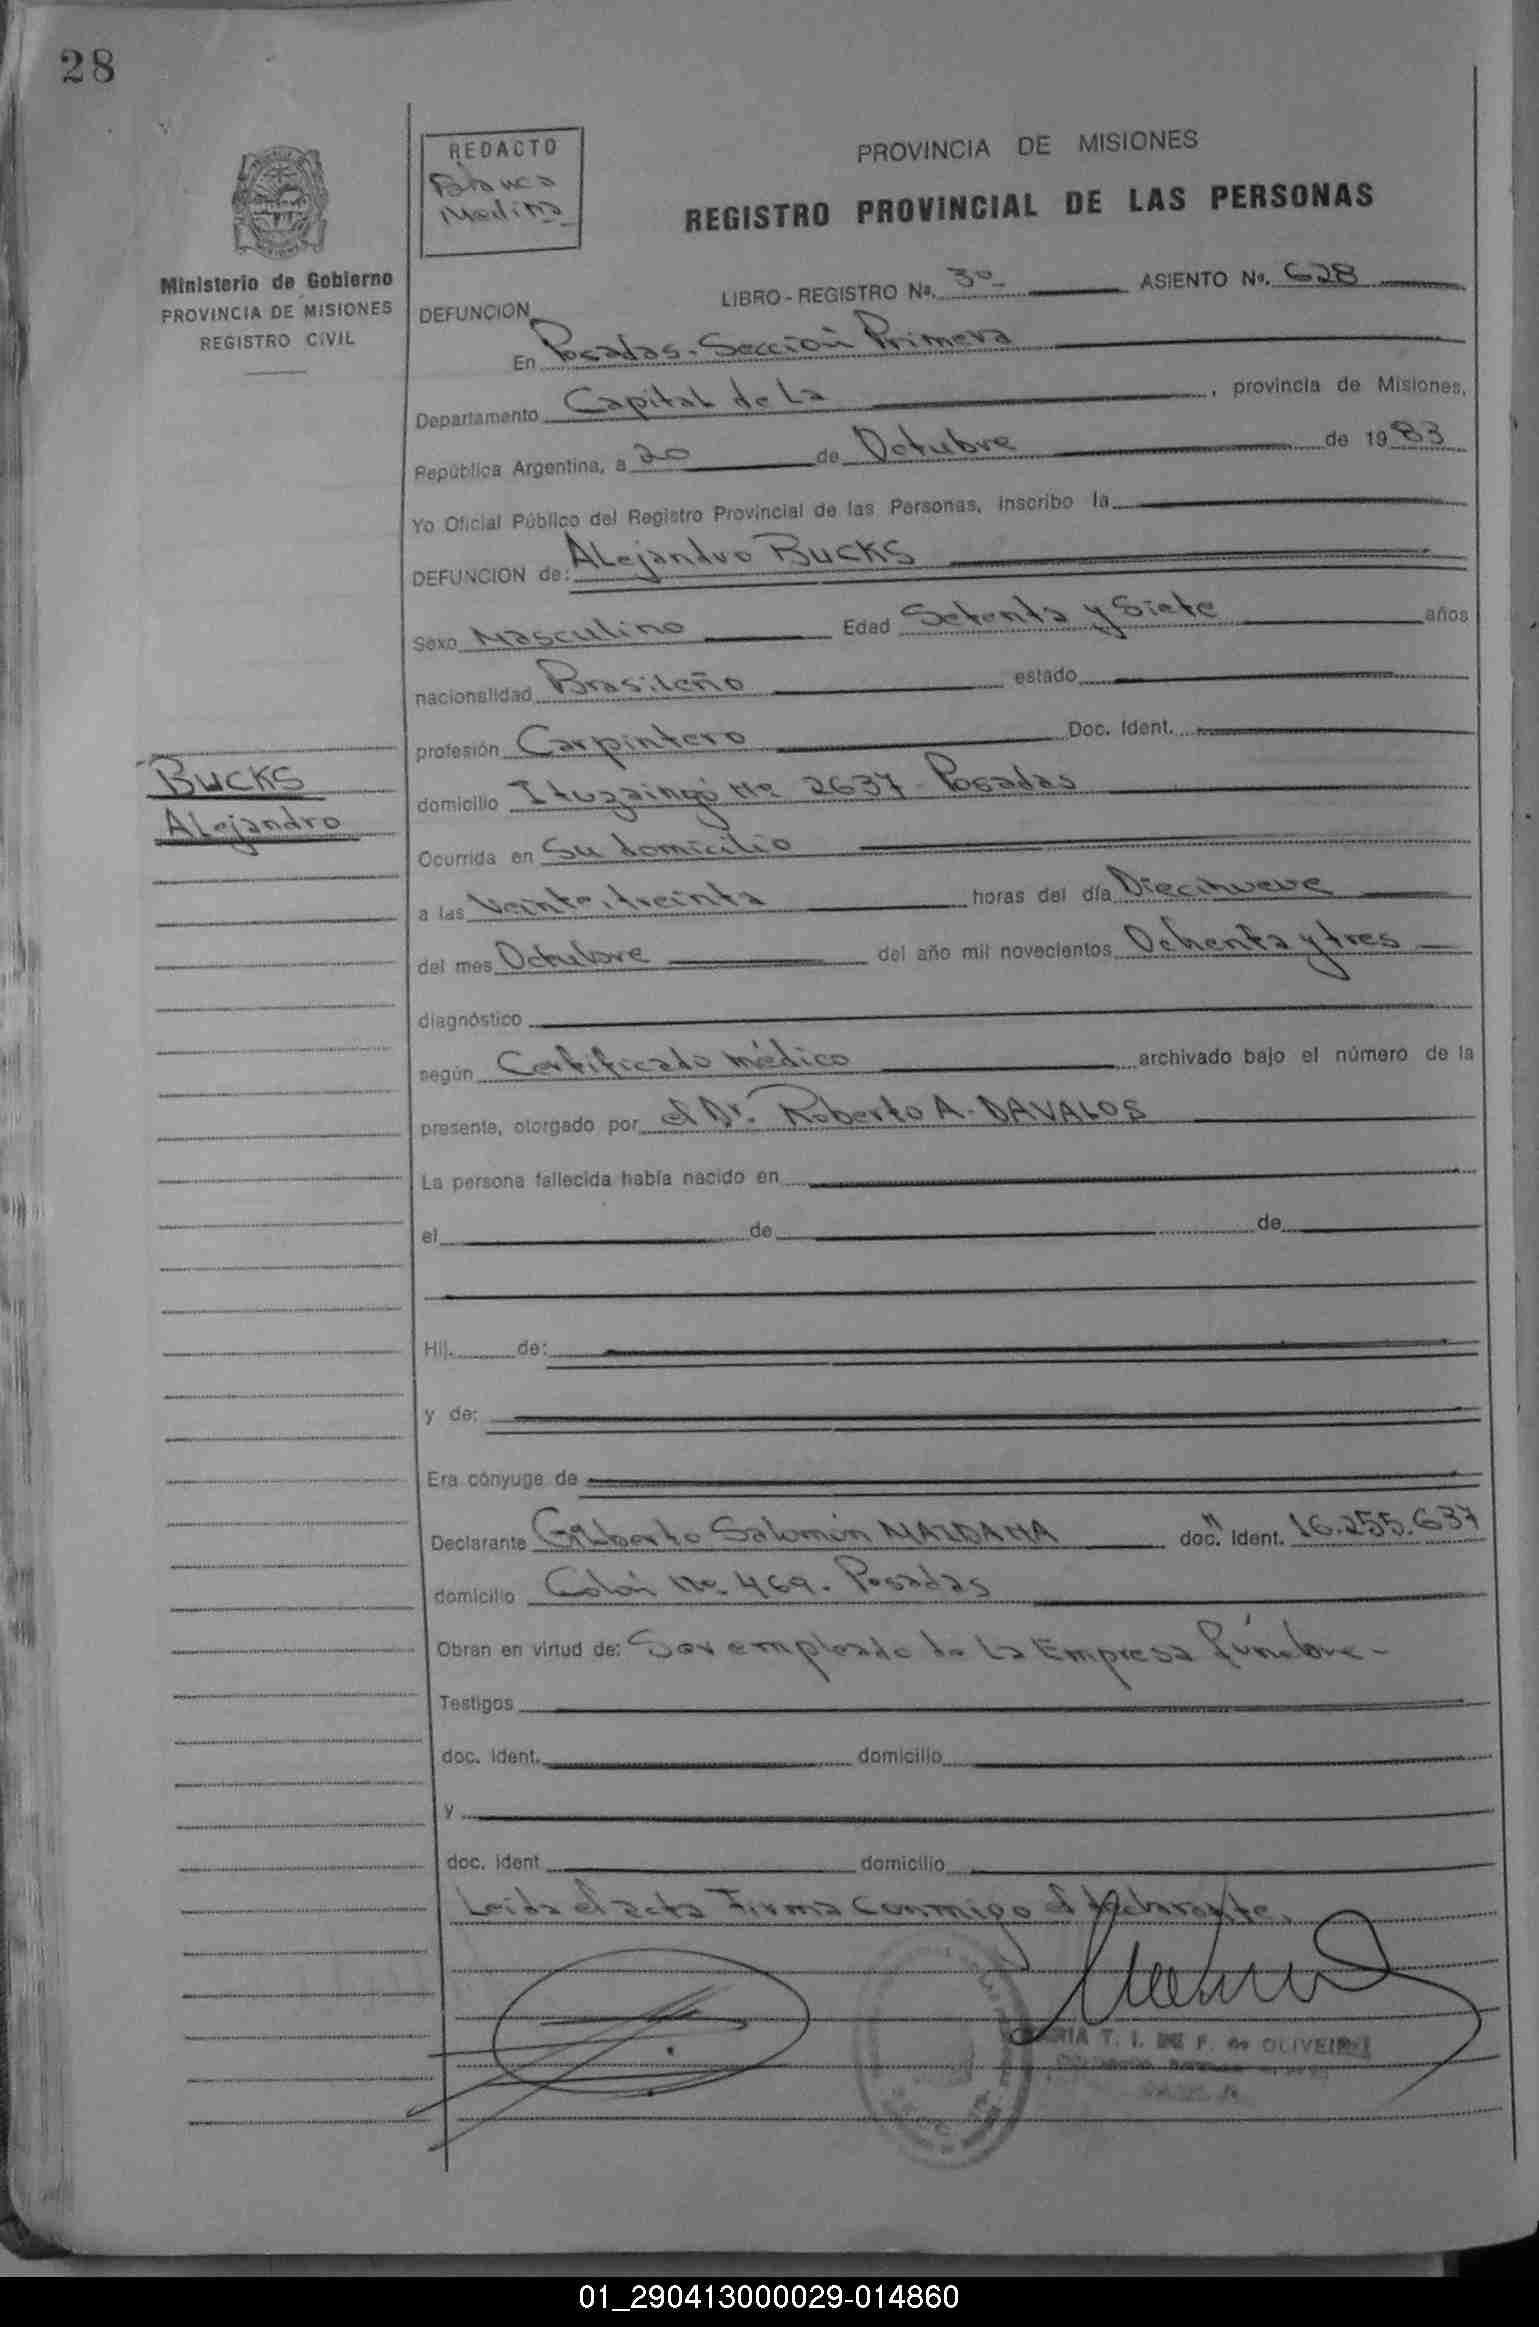 28
REDACTO
Blanca
Medina
PROVINCIA DE MISIONES
REGISTRO PROVINCIAL DE LAS PERSONAS
Ministerio de Gobierno
PROVINCIA DE MISIONES
REGISTRO CIVIL
LIBRO - REGISTRO Nº. 3º ASIENTO Nº. 628
DEFUNCION
En Posadas. Sección Primera
Departamento Capital de La , provincia de Misiones,
República Argentina, a 20 de Octubre de 1983
Yo Oficial Público del Registro Provincial de las Personas, inscribo la
DEFUNCION de: ALejandro BUCKS
Sexo Masculino Edad Setenta y Siete años
nacionalidad Brasileño estado
profesión Carpintero Doc. Ident.
BUCKS
ALejandro
domicilio Ituzaingó Nº 2637 Posadas
Ocurrida en Su domicilio
a las Veinte, treinta horas del día Diecinueve
del mes Octubre del año mil novecientos Ochenta y tres
diagnóstico
según Certificado médico archivado bajo el número de la
presente, otorgado por el Dr. Roberto A. DAVALOS
La persona fallecida había nacido en
el de de
Hij. de:
y de:
Era cónyuge de
Declarante Gilberto Salomón MAIDANA doc. Ident. 16.255.637
domicilio Colón Nº. 469. Posadas
Obran en virtud de: Ser empleado de La Empresa fúnebre-
Testigos
doc. Ident. domicilio
y
doc. Ident domicilio
Leída el acta Firma Conmigo el declarante.
T. I. DE F. de OLIVEIRA
01_290413000029-014860